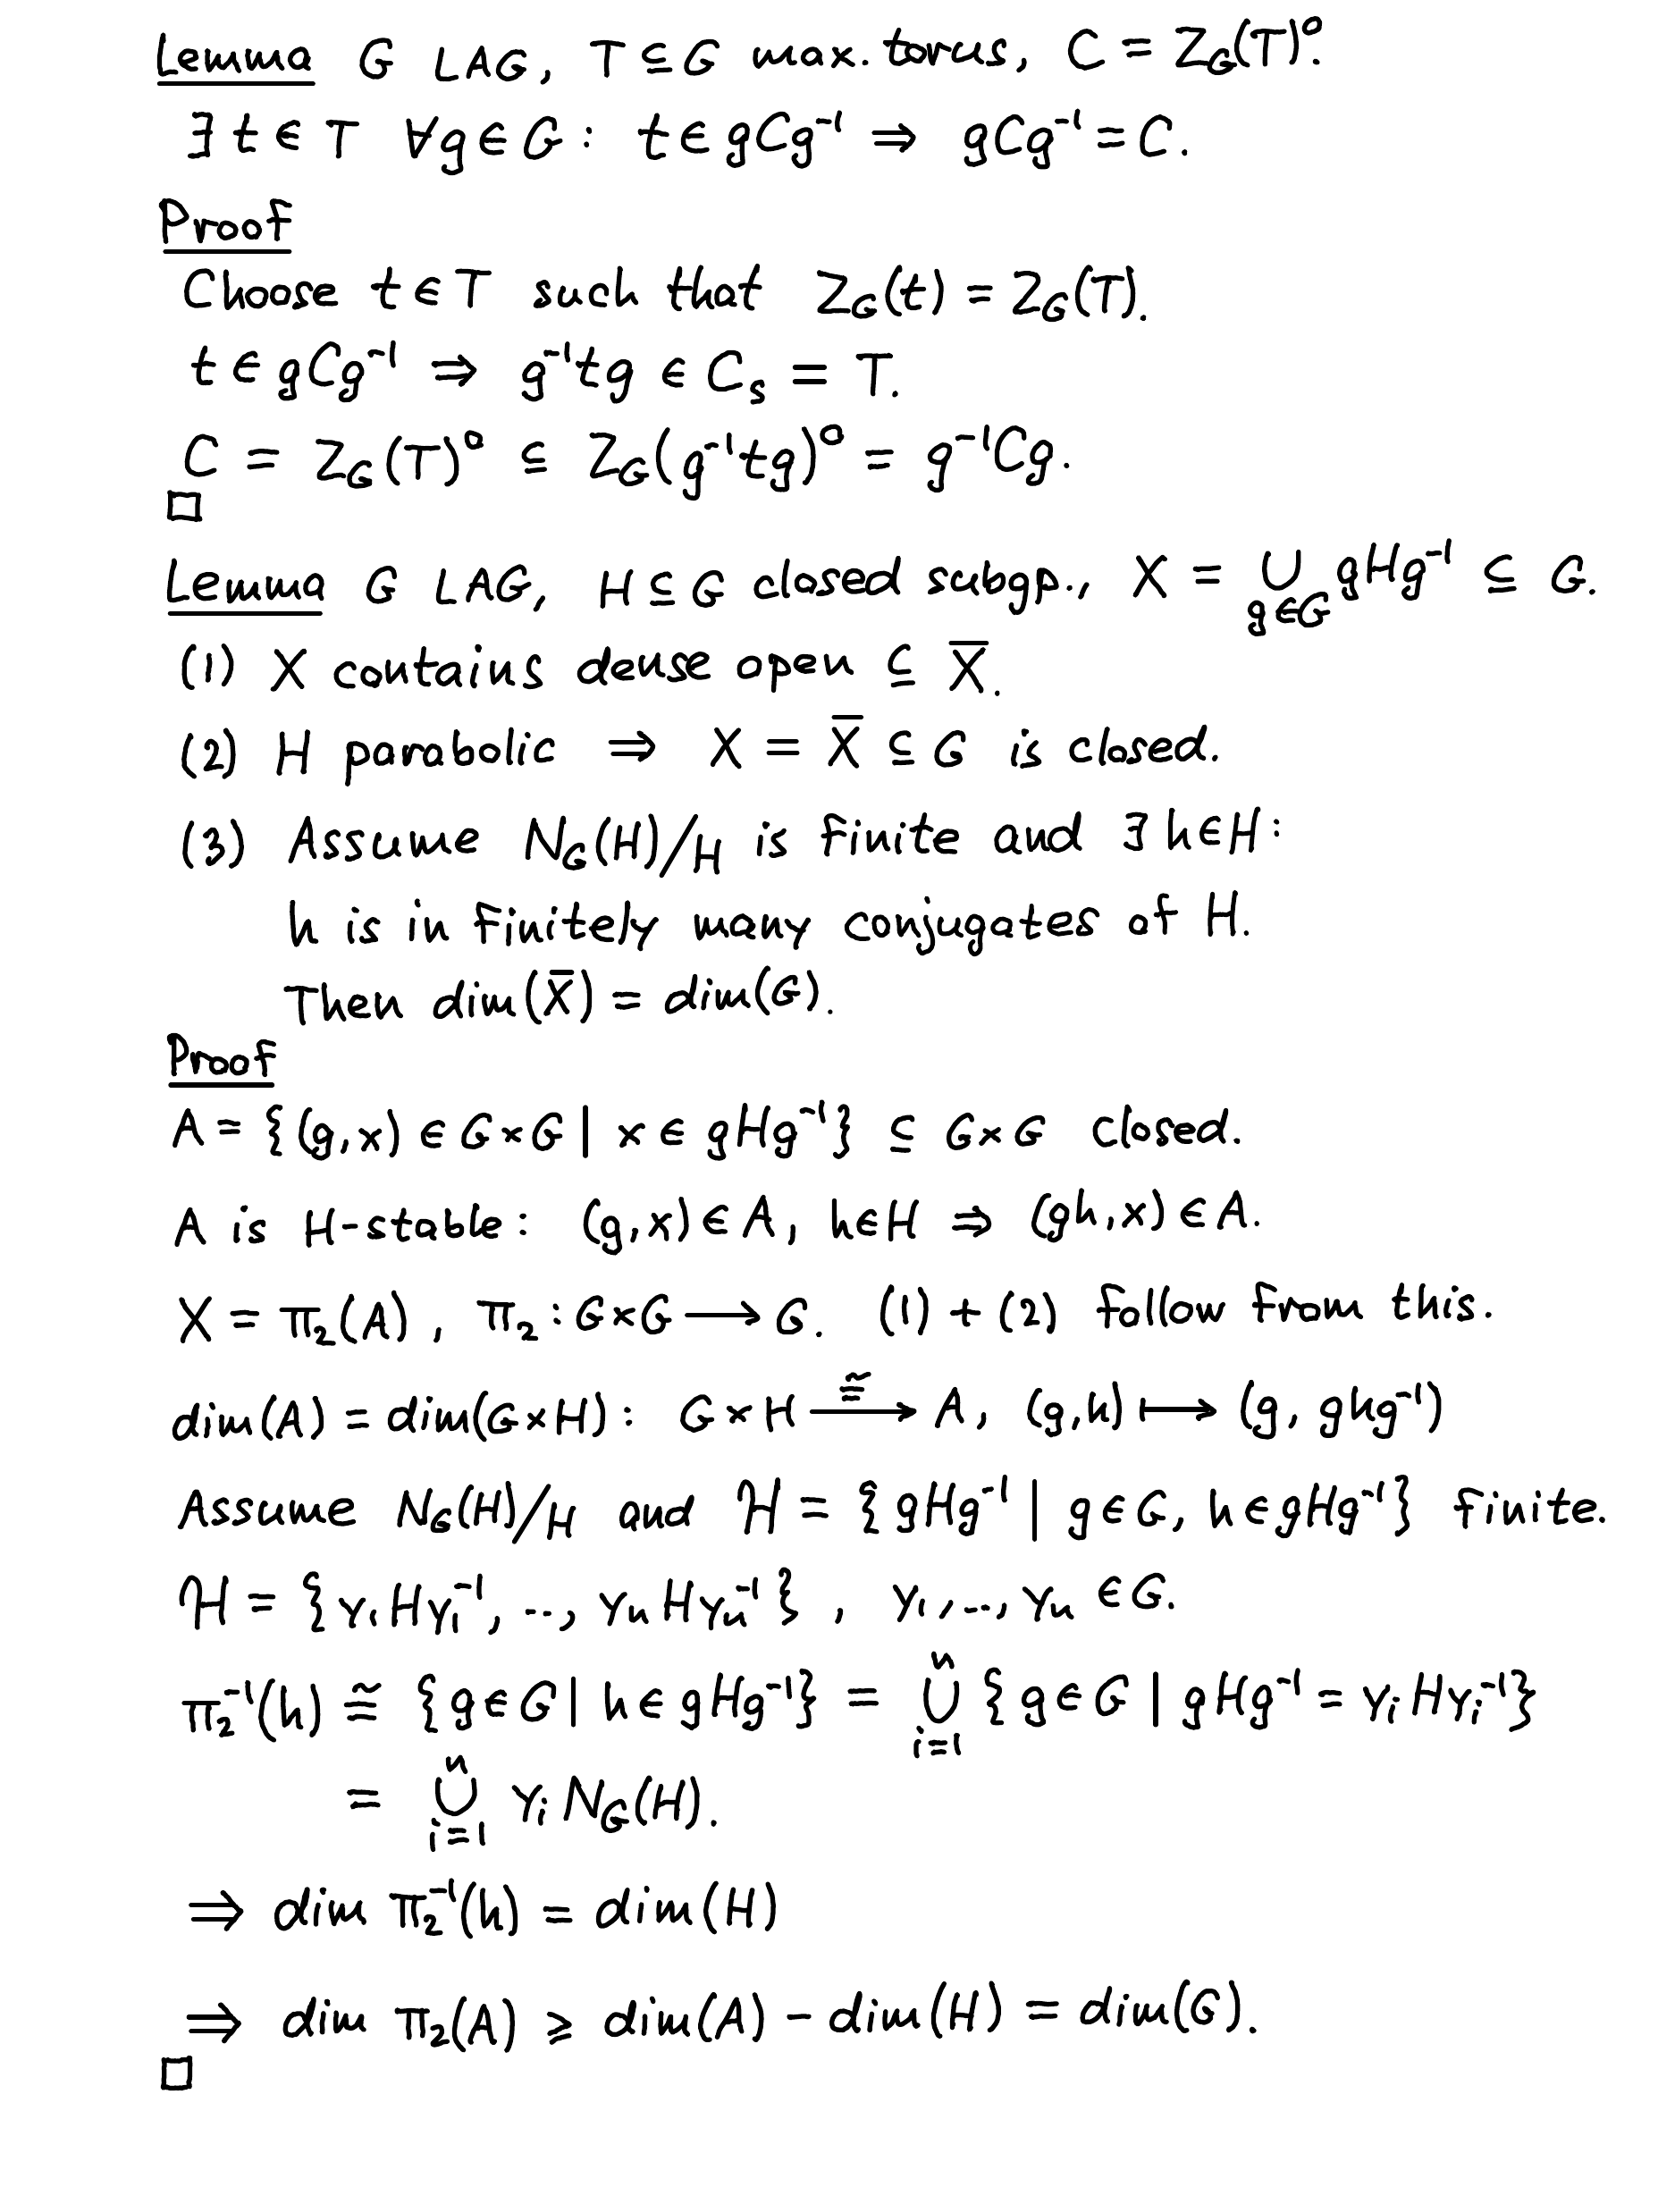 Lemma G LAG, T ⊆ G max. torus, C = Z_G(T)°.
∃ t ∈ T ∀g ∈ G : t ∈ gCg⁻¹ ⇒ gCg⁻¹ = C.
Proof
Choose t ∈ T such that Z_G(t) = Z_G(T).
t ∈ gCg⁻¹ ⇒ g⁻¹tg ∈ C_s = T.
C = Z_G(T)° ⊆ Z_G(g⁻¹tg)° = g⁻¹Cg.
□
Lemma G LAG, H ⊆ G closed subgp., X = ∪_{g∈G} gHg⁻¹ ⊆ G.
(1) X contains dense open ⊆ X̅.
(2) H parabolic ⇒ X = X̅ ⊆ G is closed.
(3) Assume N_G(H)/H is finite and ∃ h∈H :
h is in finitely many conjugates of H.
Then dim(X̅) = dim(G).
Proof
A = {(g,x) ∈ G×G | x ∈ gHg⁻¹} ⊆ G×G closed.
A is H-stable : (g,x) ∈ A, h∈H ⇒ (gh,x) ∈ A.
X = π₂(A), π₂ : G×G ⟶ G. (1) + (2) follow from this.
dim(A) = dim(G×H) : G×H ≅⟶ A, (g,h) ⟼ (g, ghg⁻¹)
Assume N_G(H)/H and ℋ = {gHg⁻¹ | g ∈ G, h ∈ gHg⁻¹} finite.
ℋ = {γ₁Hγ₁⁻¹, ..., γₙHγₙ⁻¹}, γ₁,..., γₙ ∈ G.
π₂⁻¹(h) ≅ {g ∈ G | h ∈ gHg⁻¹} = ∪_{i=1}^n {g ∈ G | gHg⁻¹ = γᵢHγᵢ⁻¹}
= ∪_{i=1}^n γᵢ N_G(H).
⇒ dim π₂⁻¹(h) = dim(H)
⇒ dim π₂(A) ⩾ dim(A) − dim(H) = dim(G).
□